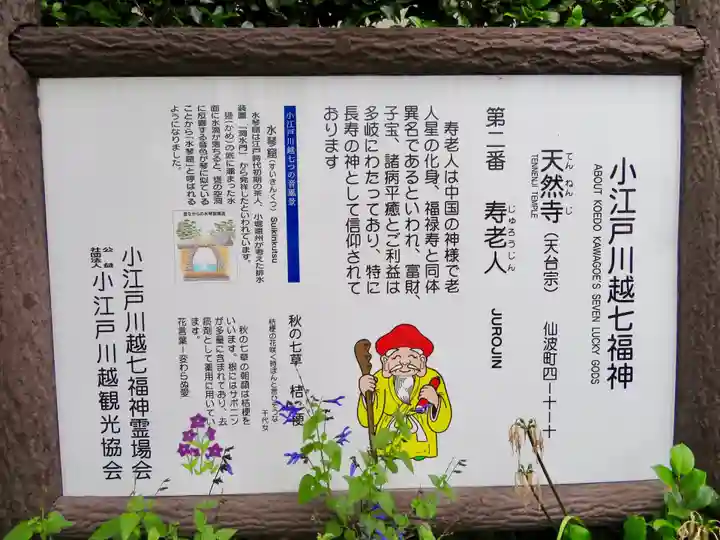 小江戸川越七福神
ABOUT KOEDO KAWAGOE'S SEVEN LUCKY GODS
てんねんじ
天然寺(天台宗) 仙波町四-十-十
TENNENJI TEMPLE
じゅろうじん
第二番 寿老人 JUROJIN
寿老人は中国の神様で老
人星の化身、福禄寿と同体
異名であるといわれ、富財、
子宝、諸病平癒とご利益は
多岐にわたっており、特に
長寿の神として信仰されて
おります
小江戸川越七つの音風景
水琴窟(すいきんくつ) Suikinkutsu
水琴窟は江戸時代初期の茶人、小堀遠州が考えた排水
装置「洞水門」から発祥したといわれています。
甕(かめ)の底に溜まった水
面に水滴が落ちると、甕の空洞
に反響する音色が琴に似ている
ことから「水琴窟」と呼ばれる
ようになりました。
秋の七草 桔梗
桔梗の花咲く時ぽんと言ひそうな
千代女
秋の七草の朝顔は桔梗を
いいます。根にはサポニン
が多量に含まれており、去
痰剤として薬用に用いてい
ます。
花言葉ー変わらぬ愛
小江戸川越七福神霊場会
公益社団法人 小江戸川越観光協会